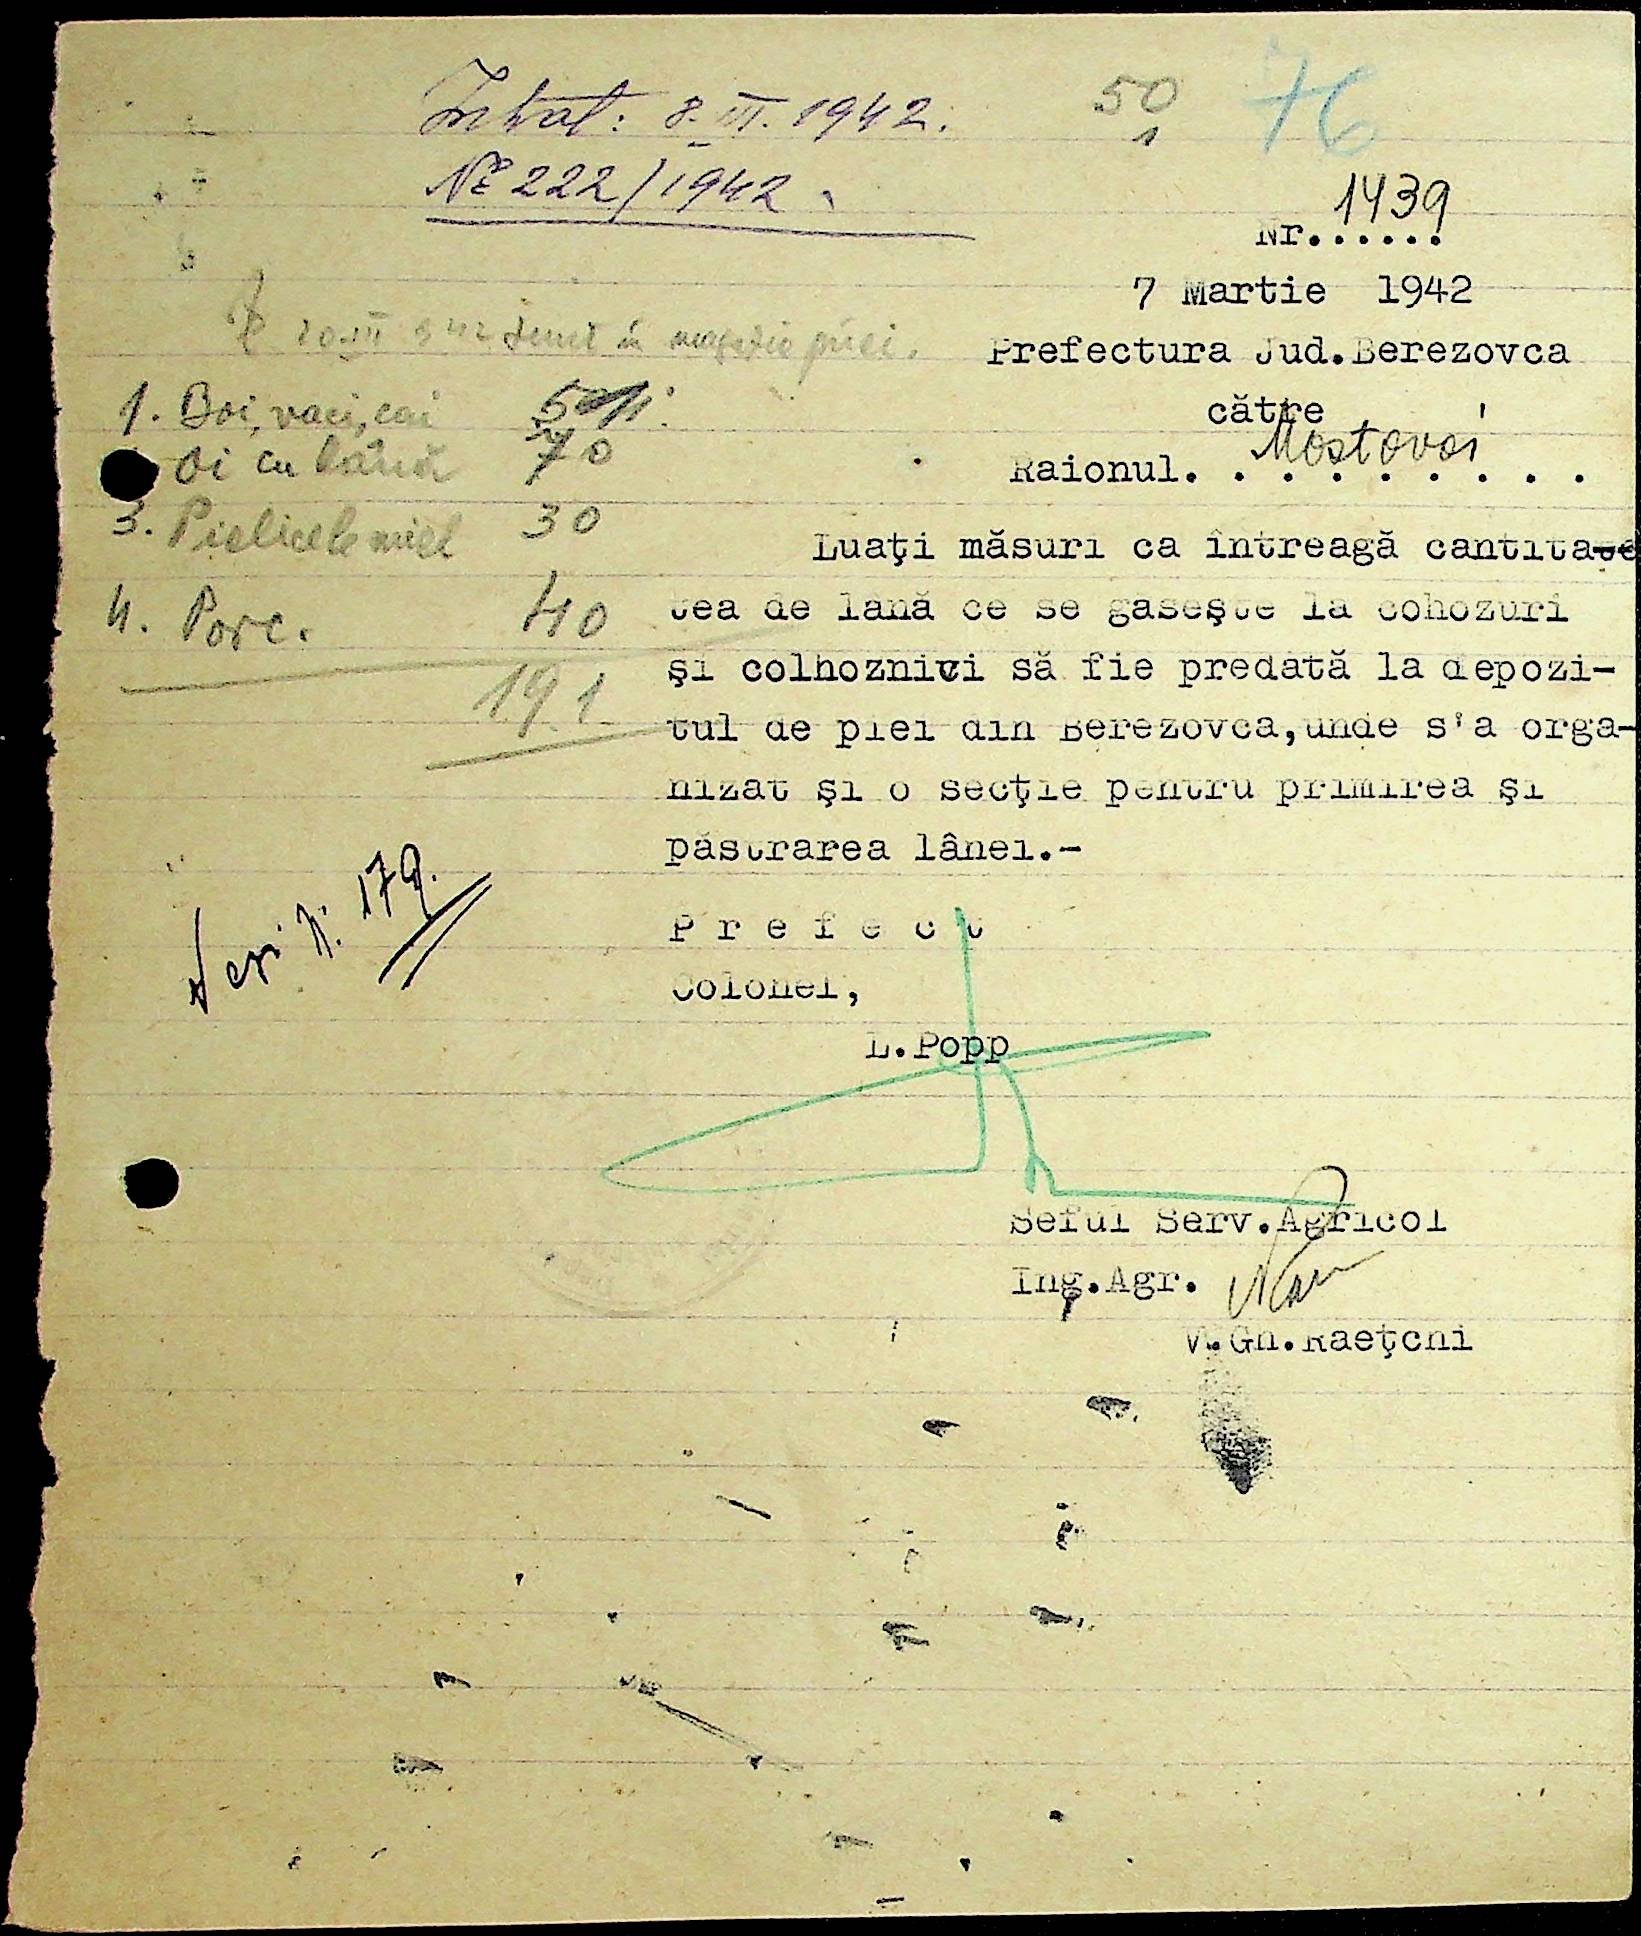 Intrat: 8.III.1942.
№ 222/1942.
50
1
76
Nr. 1439
7 Martie 1942
Prefectura Jud.Berezovca
către
Raionul. Mostovoi
20.III 942 în magazie piei.
1. Boi, vaci, cai
Oi cu lână 70
3. Pielicele miel 30
4. Porc. 40
191
Luaţi măsuri ca întreagă cantita
tea de lană ce se gaseşte la cohozuri
şi colhoznici să fie predată la depozi-
tul de piei din Berezovca,unde s'a orga-
nizat şi o secţie pentru primirea şi
păstrarea lânei.-
Vezi N. 179.
P r e f e c t
Colonel,
L.Popp
Seful Serv.Agricol
Ing.Agr.
V.Gh.Raeţchi